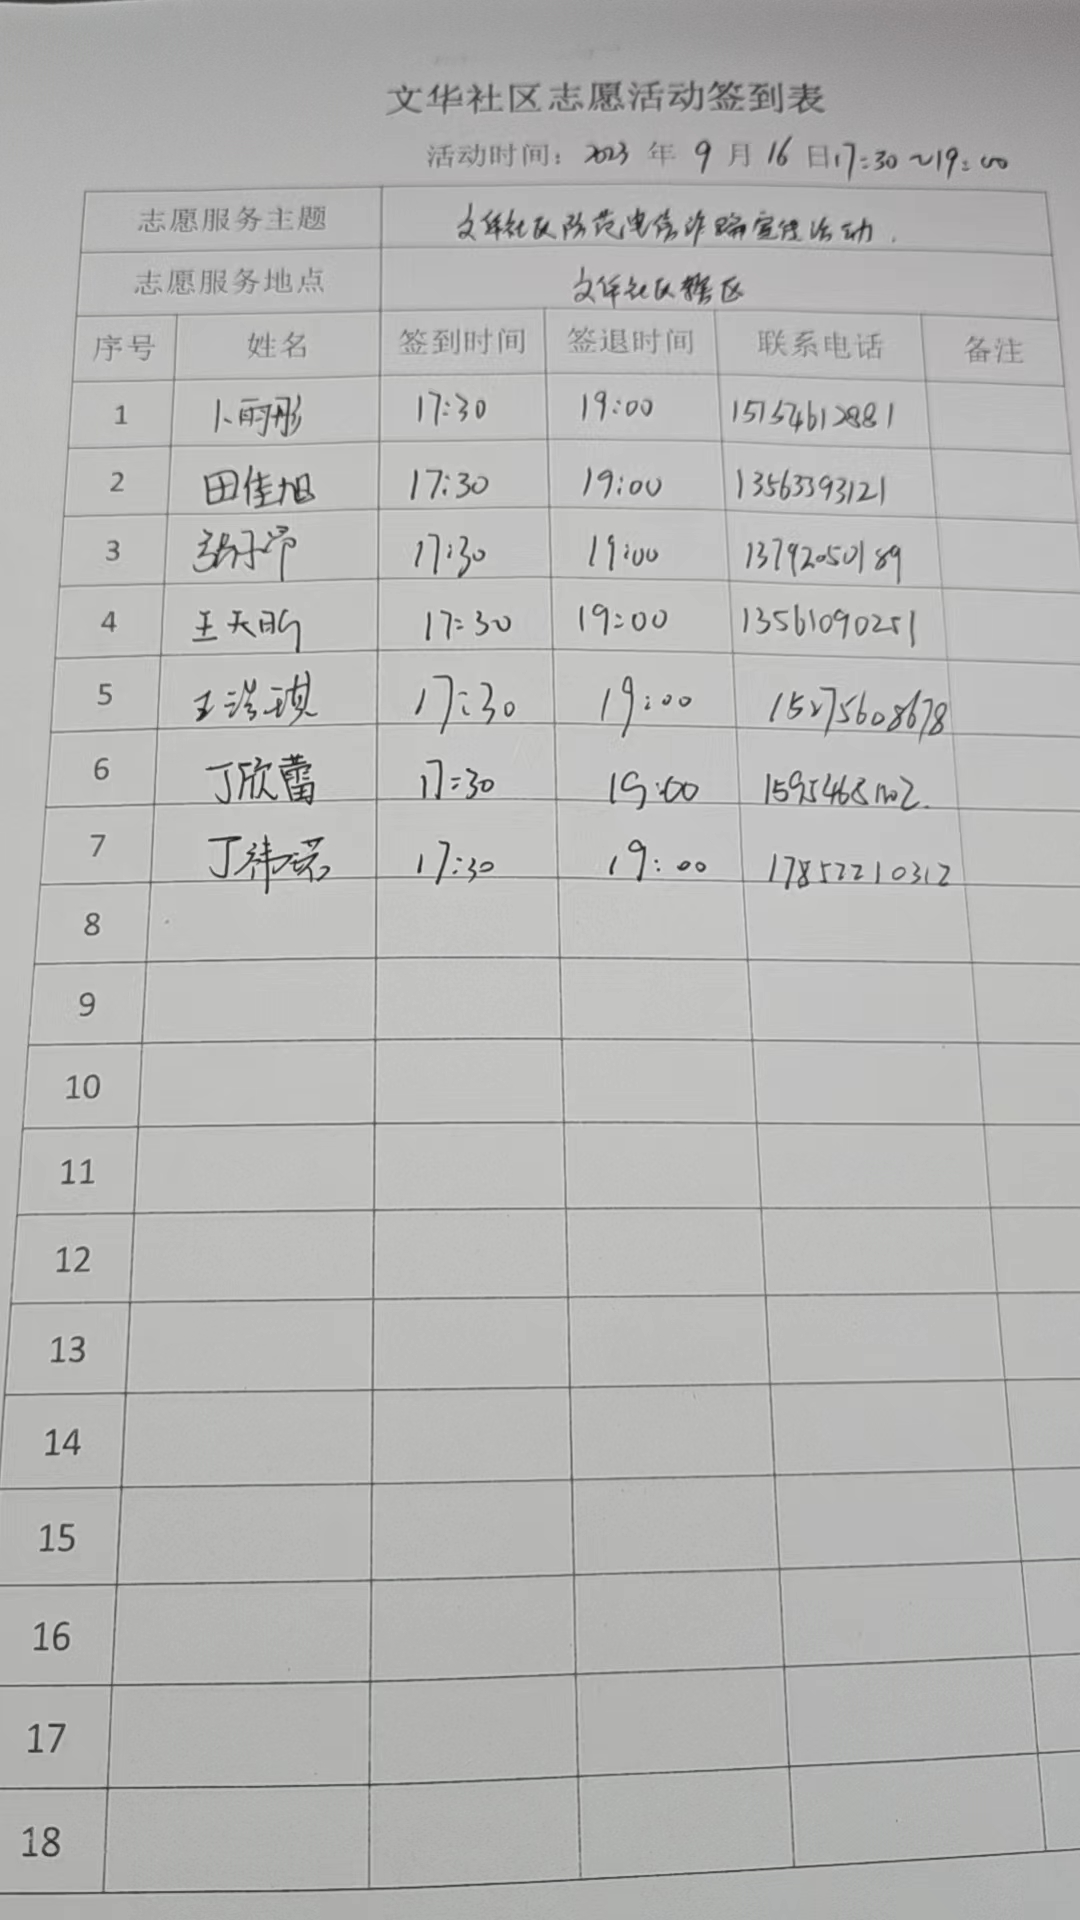 文华社区志愿活动签到表
活动时间：2023 年 9 月 16 日17:30~19:00
志愿服务主题 文华社区防范电信诈骗宣传活动.
志愿服务地点 文华社区辖区
序号 姓名 签到时间 签退时间 联系电话 备注
1 卜雨彤 17:30 19:00 15154612881
2 田佳旭 17:30 19:00 13563393121
3 17:30 19:00 13792050189
4 王天昕 17:30 19:00 13561090251
5 王浩琪 17:30 19:00 15275608678
6 丁欣蕾 17:30 19:00
7 丁祎珺 17:30 19:00 17852210312
8
9
10
11
12
13
14
15
16
17
18